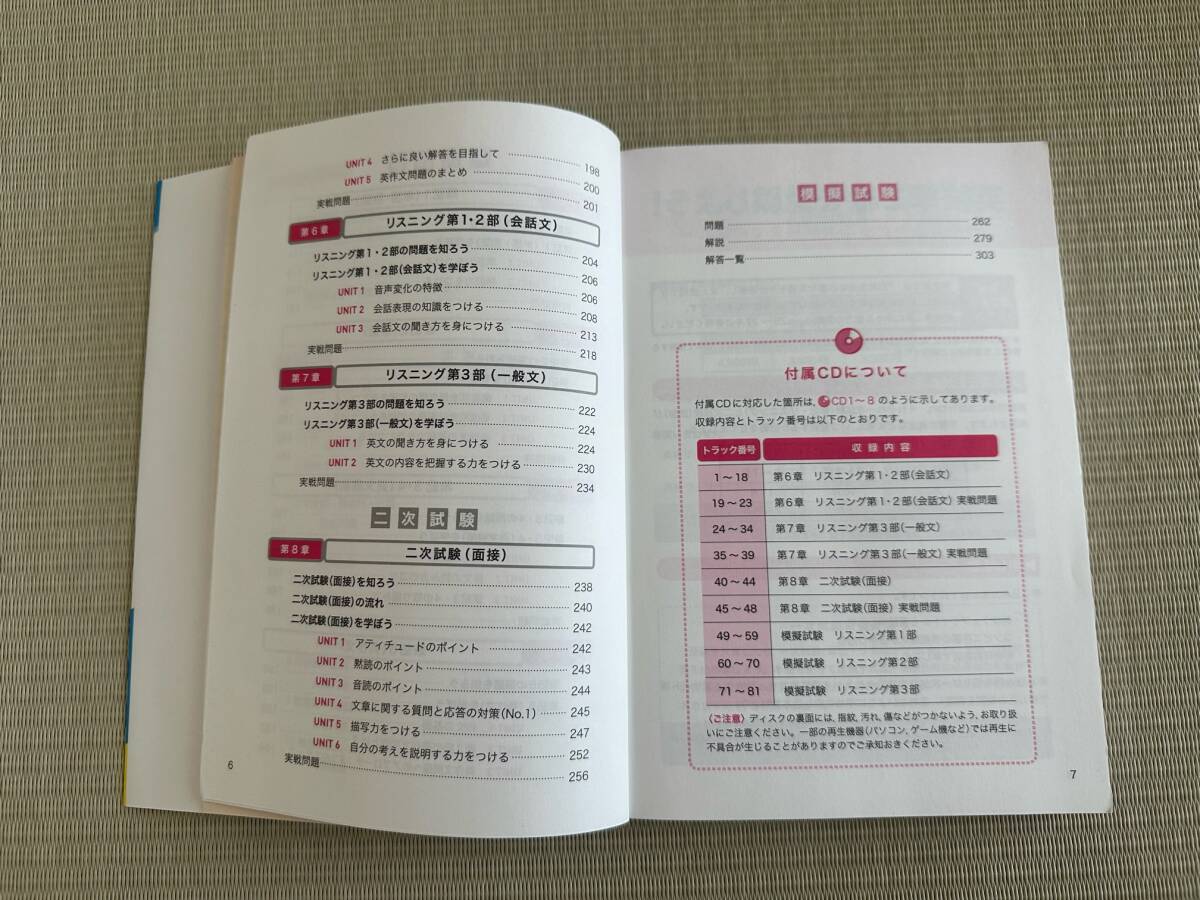 UNIT 4 さらに良い解答を目指して 198
UNIT 5 英作文問題のまとめ 200
実戦問題 201
第6章 リスニング第1・2部(会話文)
リスニング第1・2部の問題を知ろう 204
リスニング第1・2部(会話文)を学ぼう 206
UNIT 1 音声変化の特徴 206
UNIT 2 会話表現の知識をつける 208
UNIT 3 会話文の聞き方を身につける 213
実戦問題 218
第7章 リスニング第3部(一般文)
リスニング第3部の問題を知ろう 222
リスニング第3部(一般文)を学ぼう 224
UNIT 1 英文の聞き方を身につける 224
UNIT 2 英文の内容を把握する力をつける 230
実戦問題 234
二次試験
第8章 二次試験(面接)
二次試験(面接)を知ろう 238
二次試験(面接)の流れ 240
二次試験(面接)を学ぼう 242
UNIT 1 アティチュードのポイント 242
UNIT 2 黙読のポイント 243
UNIT 3 音読のポイント 244
UNIT 4 文章に関する質問と応答の対策(No.1) 245
UNIT 5 描写力をつける 247
UNIT 6 自分の考えを説明する力をつける 252
実戦問題 256
6
模擬試験
問題 262
解説 279
解答一覧 303
付属CDについて
付属CDに対応した箇所は、CD1〜8のように示してあります。
収録内容とトラック番号は以下のとおりです。
トラック番号 収録内容
1〜18 第6章 リスニング第1・2部(会話文)
19〜23 第6章 リスニング第1・2部(会話文) 実戦問題
24〜34 第7章 リスニング第3部(一般文)
35〜39 第7章 リスニング第3部(一般文) 実戦問題
40〜44 第8章 二次試験(面接)
45〜48 第8章 二次試験(面接) 実戦問題
49〜59 模擬試験 リスニング第1部
60〜70 模擬試験 リスニング第2部
71〜81 模擬試験 リスニング第3部
〈ご注意〉ディスクの裏面には、指紋、汚れ、傷などがつかないよう、お取り扱
いにご注意ください。一部の再生機器(パソコン、ゲーム機など)では再生に
不具合が生じることがありますのでご承知おきください。
7